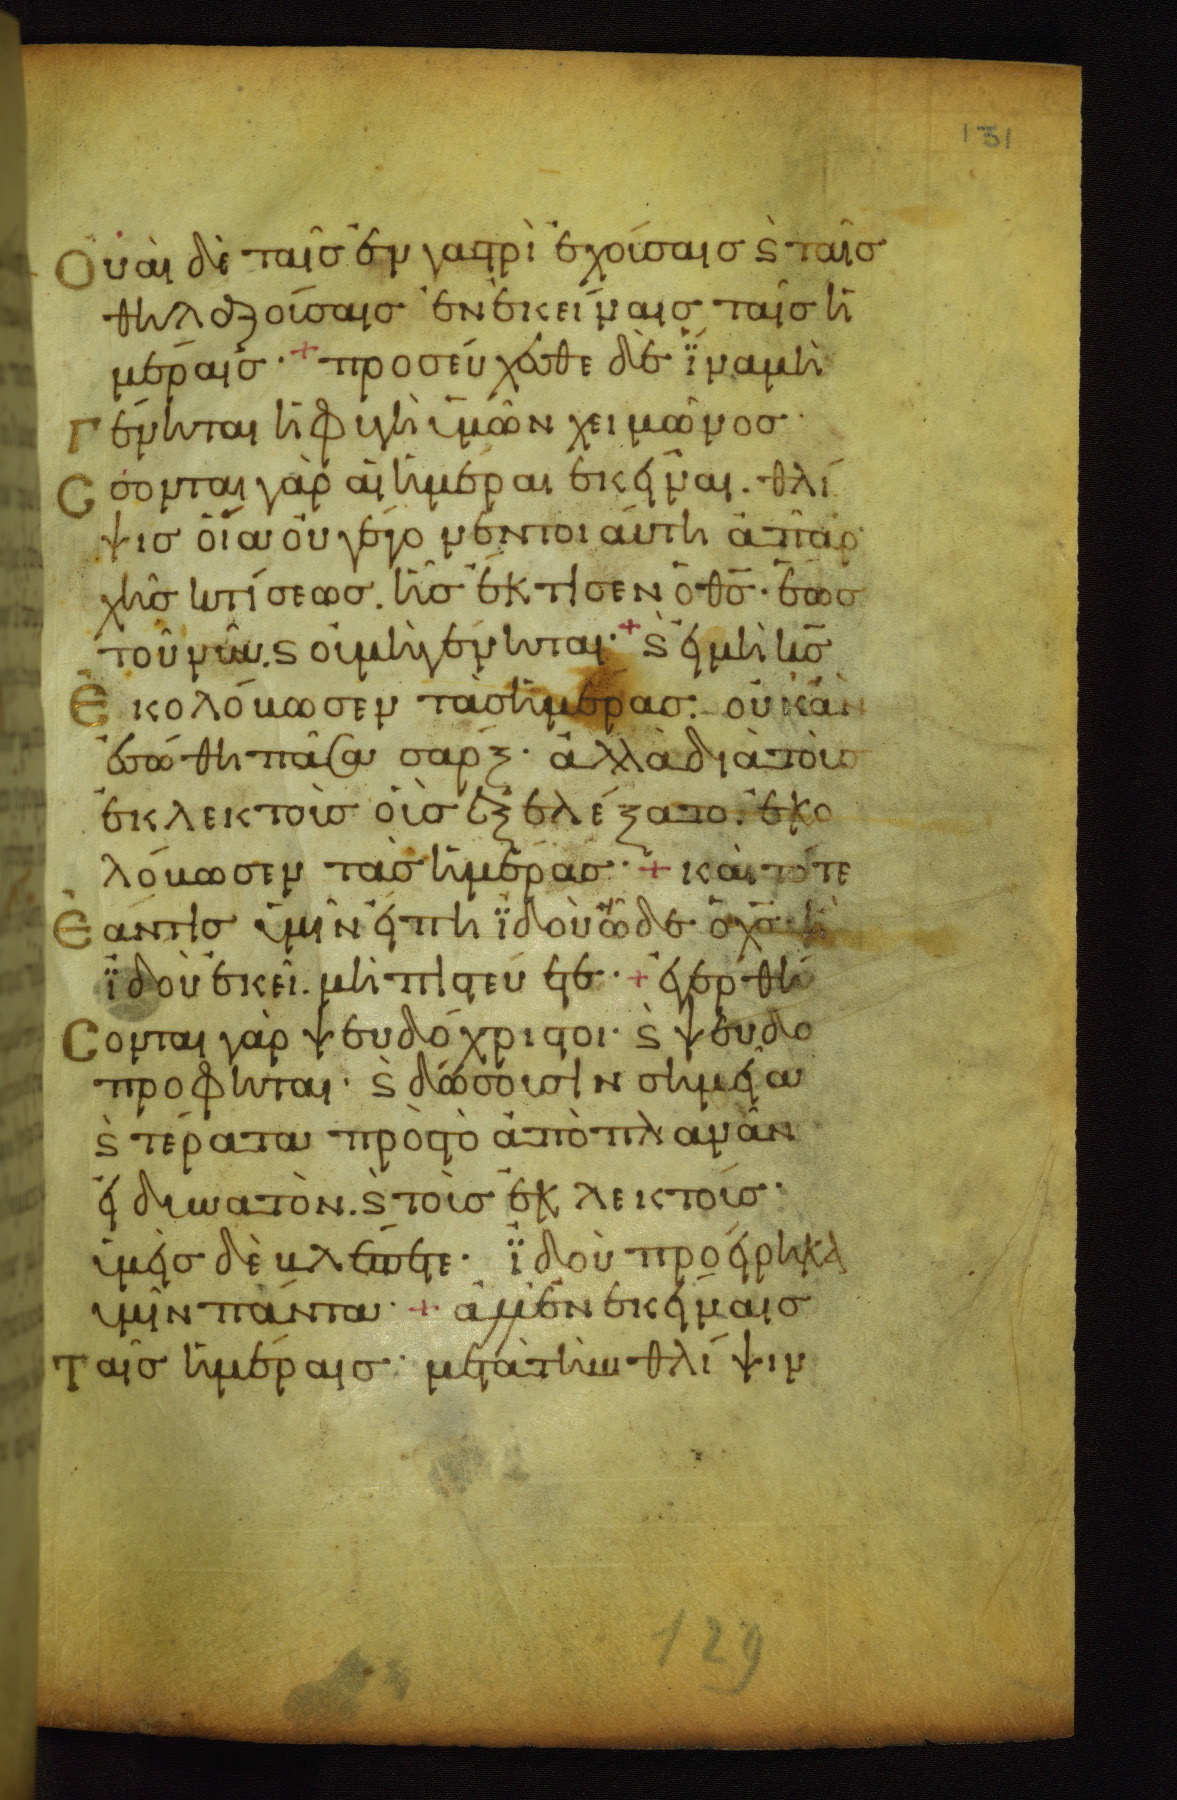 131
Οὐαὶ δὲ ταῖς ἐν γαστρὶ ἐχούσαις ϗ ταῖς
θηλαζούσαις ἐν ἐκείναις ταῖς ἡ
μέραις· + προσεύχεσθε δὲ ἵνα μὴ
γένηται ἡ φυγὴ ὑμῶν χειμῶνος·
ἔσονται γὰρ αἱ ἡμέραι ἐκεῖναι. θλί
ψις οἵα οὐ γέγονεν τοιαύτη ἀπ' ἀρ
χῆς κτίσεως. ἧς ἔκτισεν ὁ θς̅· ἕως
τοῦ νῦν. ϗ οὐ μὴ γένηται· + ϗ εἰ μὴ κς̅
ἐκολόβωσεν τὰς ἡμέρας. οὐκ ἂν
ἐσώθη πᾶσα σάρξ· ἀλλὰ διὰ τοὺς
ἐκλεκτοὺς οὓς ἐξελέξατο. ἐκο
λόβωσεν τὰς ἡμέρας· + καὶ τότε
ἐάν τις ὑμῖν εἴπη ἰδοὺ ὧδε ὁ χς̅· ἢ
ἰδοὺ ἐκεῖ. μὴ πιστεύετε· + ἐγερθή
σονται γὰρ ψευδόχριστοι· ϗ ψευδο
προφῆται· ϗ δώσουσιν σημεῖα
ϗ τέρατα πρὸς τὸ ἀποπλανᾶν
εἰ δυνατὸν. ϗ τοὺς ἐκλεκτούς·
ὑμεῖς δὲ βλέπετε· ἰδοὺ προείρηκα
ὑμῖν πάντα· + ἀλλ' ἐν ἐκείναις
ταῖς ἡμέραις· μετὰ τὴν θλίψιν
129